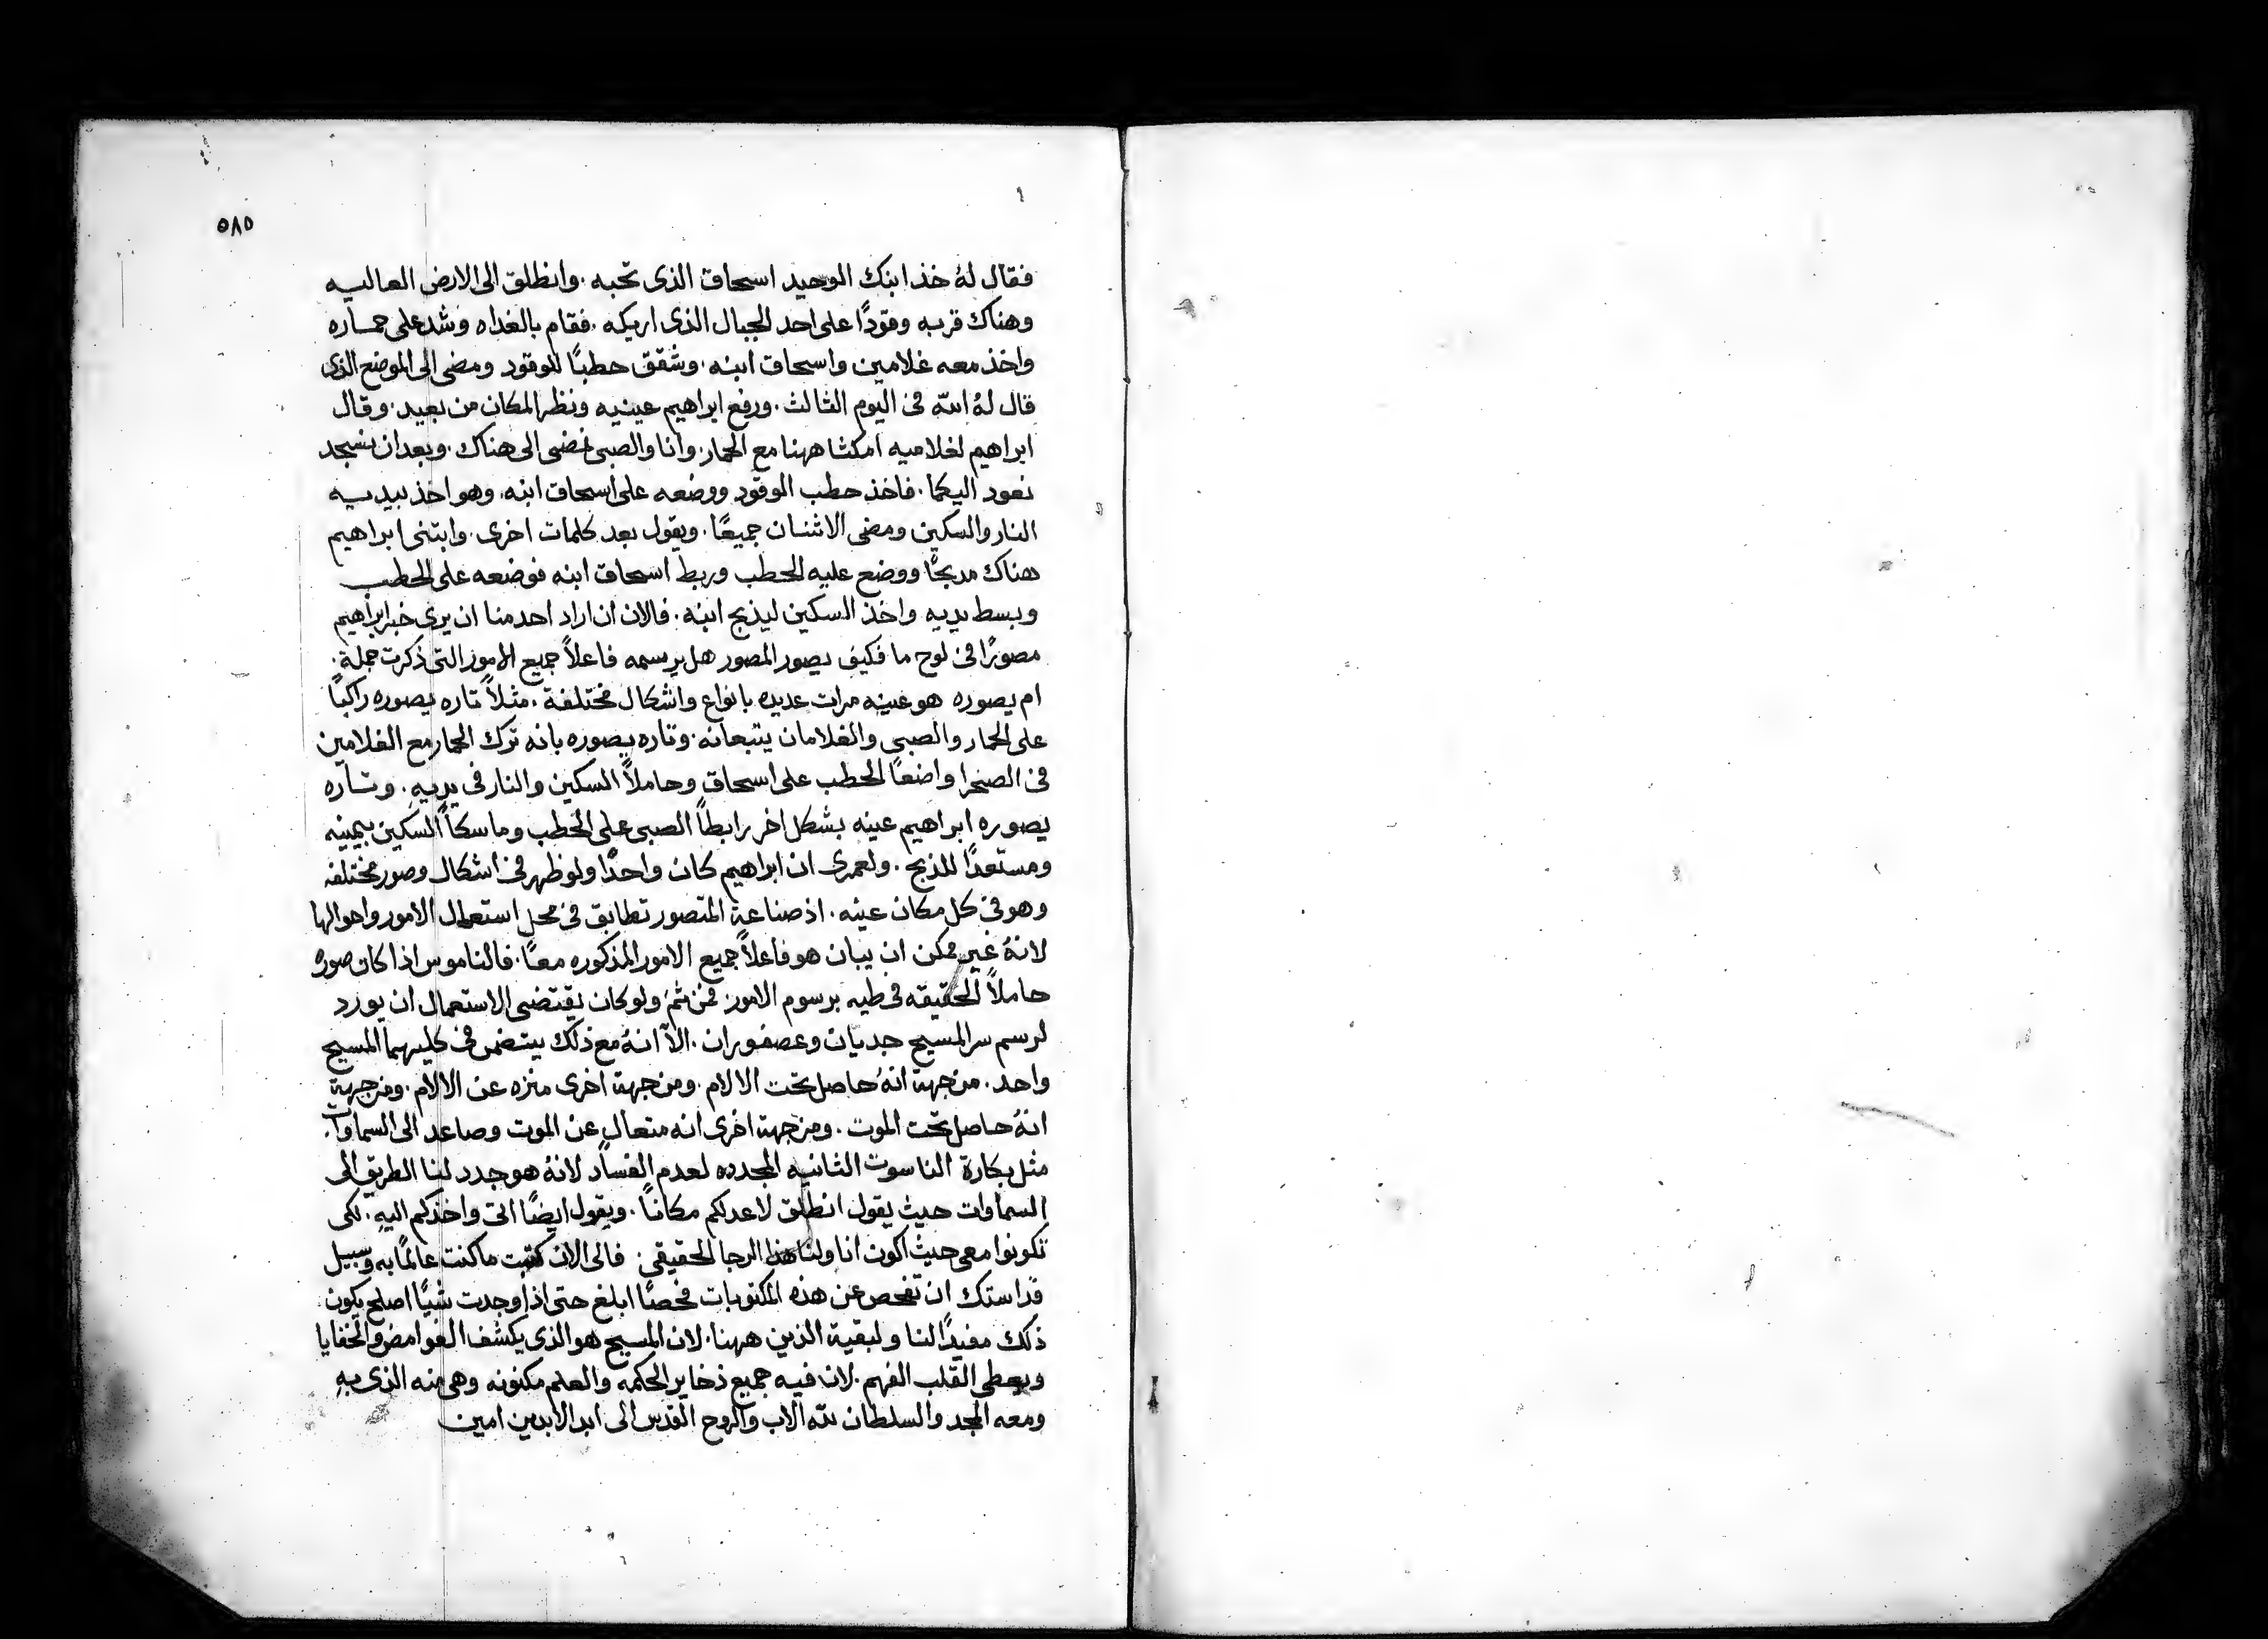 ٥٨٥
فقال لهُ خذ ابنك الوحيد اسحاق الذى تحبه . وانطلق الى الارض العاليه
وهناك قربه وقودًا على احد الجبال الذى اريكه . فقام بالغداه وشد على حماره
واخذ معه غلامين واسحاق ابنه . وشقق حطبًا للوقود ومضى الى الموضع الذى
قال لهُ الله فى اليوم الثالث . ورفع ابراهيم عينيه ونظر المكان من بعيد . وقال
ابراهيم لغلاميه امكثا ههنا مع الحمار . وانا والصبى نمضى الى هناك . وبعد ان نسجد
نعود اليكما . فاخذ حطب الوقود ووضعه على اسحاق ابنه . وهو اخذ بيديه
النار والسكين ومضى الاثنان جميعًا . ويقول بعد كلمات اخرى . وابتنى ابراهيم
هناك مدبحًا ووضع عليه الحطب وربط اسحاق ابنه فوضعه على الحطب
وبسط يديه واخذ السكين ليذبح ابنه . فالان ان اراد احد منا ان يرى خبر ابراهيم
مصورًا فى لوح ما فكيف يصور المصور هل يرسمه فاعلاً جميع الامور التى ذكرت جملة .
ام يصوره هو عينه مرات عديده بانواع واشكال مختلفة . مثلاً تاره يصوره راكبًا
على الحمار والصبى والغلامان يتبعانه . وتاره يصوره بانه ترك الحمار مع الغلامين
فى الصحرا واضعًا الحطب على اسحاق وحاملاً السكين والنار فى يديهِ . وتاره
يصوره ابراهيم عينه بشكل اخر رابطاً الصبى على الحطب وماسكاً السكين بيمينه
ومستعدًا للذبح . ولعمرى ان ابراهيم كان واحدًا ولو ظهر فى اشكال وصور مختلفه
وهو فى كل مكان عينه . اذ صناعة المتصور تطابق فى محل استعمال الامور واحوالها
لانهُ غير ممكن ان يبان هو فاعلاً جميع الامور المذكوره معًا . فالناموس اذا كان صوره
حاملاً الحقيقه فى طيه برسوم الامور . فمن ثمَ ولو كان يقتضى الاستعمال ان يورد
لرسم سر المسيح جديان وعصفوران . الآ انهُ مع ذلك يتضمن فى كليهما المسيح
واحد . من جهة انهُ حاصل تحت الالام . ومن جهة اخرى منزه عن الالام . ومن جهة
انهُ حاصل تحت الموت . ومن جهة اخرى انه متعالٍ عن الموت وصاعد الى السماوات .
مثل بكارة الناسوت الثانيه المجدده لعدم الفساد لانهُ هو جدد لنا الطريق الى
السماوات حيث يقول انطلق لاعد لكم مكاناً . ويقول ايضًا اتى واخذكم اليهِ . لكى
تكونوا معى حيث اكون انا ولنا هذا الرجا الحقيقى . فالى الان كتبت ما كنت عالمًا به وسبيل
قداستك ان تفحص عن هذه المكتوبات فحصًا ابلغ حتى اذا وجدت شيًا اصلح يكون
ذلك مفيدًا لنا ولبقية الذين ههنا . لان المسيح هو الذى يكشف الغوامض والخفايا
ويعطى القلب الفهم . لان فيه جميع ذخاير الحكمه والعلم مكنونه وهى منه الذى بهِ
ومعه المجد والسلطان لله الاب والروح القدس الى ابد الابدين امين